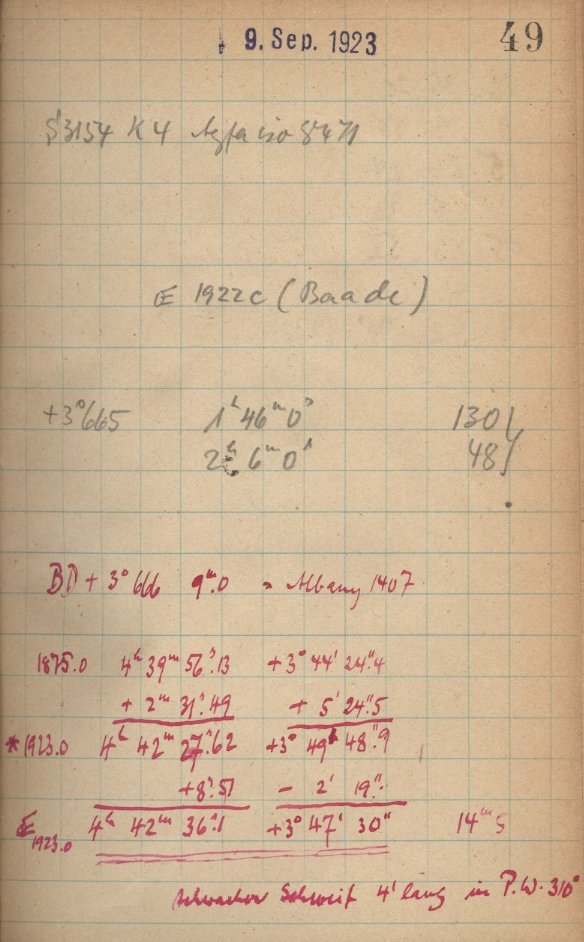 9. Sep. 1923 49
S3154 K4 Agfa iso 8471
1922c (Baade)
+3°665 1ʰ 46ᵐ 0ˢ 130
2ʰ 6ᵐ 0ˢ 48
BD + 3° 666 9ᵐ.0 = Albany 1407
1875.0 4ʰ 39ᵐ 56ˢ.13 +3° 44' 24".4
+ 2ᵐ 31ˢ.49 + 5' 24".5
* 1923.0 4ʰ 42ᵐ 27ˢ.62 +3° 49' 48".9
+8ˢ.51 - 2' 19".
1923.0 4ʰ 42ᵐ 36ˢ.1 +3° 47' 30" 14ᵐ 5
schwacher Schweif 4' lang in P.W. 310°